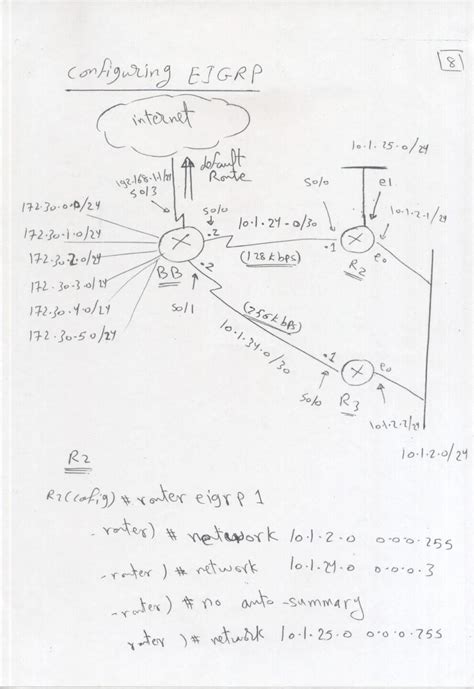 8
Configuring EIGRP
internet
192.168.1.1/24
S0/3
default
Route
10.1.25.0/24
172.30.0.0/24
172.30.1.0/24
172.30.2.0/24
172.30.3.0/24
172.30.4.0/24
172.30.5.0/24
S0/0
.2
10.1.24.0/30
(128 kbps)
S0/0
.1
e1
10.1.2.1/24
R2
e0
BB
.2
S0/1
(256 kbps)
10.1.34.0/30
.1
S0/0
R3
e0
10.1.2.2/24
10.1.2.0/24
R2
R2(cofig)# router eigrp 1
-router)# network 10.1.2.0 0.0.0.255
-router)# network 10.1.24.0 0.0.0.3
-router)# no auto-summary
router)# network 10.1.25.0 0.0.0.255